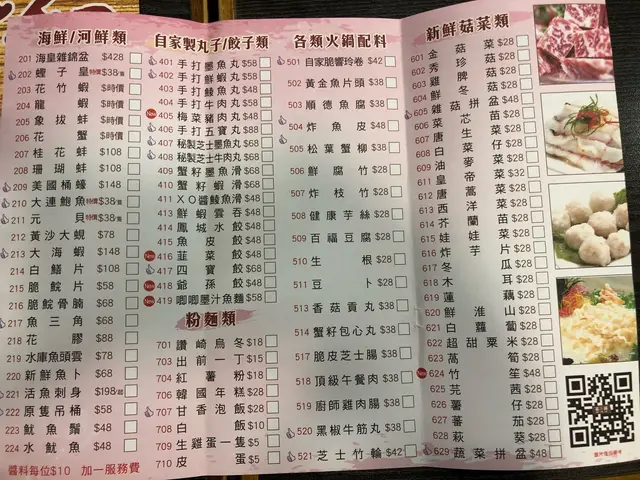 海鮮/河鮮類
201 海皇雜錦盆 $428
202 蟶子皇 特價$38/隻
203 花竹蝦 $時價
204 龍蝦 $時價
205 象拔蚌 $時價
206 花蟹 $時價
207 桂花蚌 $108
208 珊瑚蚌 $108
209 美國桶蠔 $148
210 大連鮑魚 特價$38/隻
211 元貝 特價$38/隻
212 黃沙大蜆 $78
213 大海蝦 $148
214 白鱔片 $108
215 脆鯇片 $58
216 脆鯇骨腩 $68
217 魚三角 $68
218 花膠 $88
219 水庫魚頭雲 $78
220 新鮮魚卜 $68
221 活魚刺身 $198/起
222 原隻吊桶 $58
223 魷魚鬚 $48
224 水魷魚 $48
醬料每位$10 加一服務費
自家製丸子/餃子類
401 手打墨魚丸 $58
402 手打蝦丸 $88
403 手打鯪魚丸 $48
404 手打牛肉丸 $58
New 405 梅菜豬肉丸 $48
406 手打五寶丸 $68
407 秘製芝士墨魚丸 $68
408 秘製芝士牛肉丸 $68
409 蟹籽墨魚滑 $68
410 蟹籽蝦滑 $68
411 XO醬鯪魚滑 $48
413 鮮蝦雲吞 $48
414 鳳城水餃 $48
415 魚皮餃 $48
New 416 韮菜餃 $48
417 四寶餃 $68
New 418 爺孫餃 $48
New 419 唧唧墨汁魚麵 $58
粉麵類
701 讚崎烏冬 $18
703 出前一丁 $15
704 紅薯粉 $18
706 韓國年糕 $28
707 甘香泡飯 $28
708 白飯 $10
709 生雞蛋一隻 $5
710 皮蛋 $5
各類火鍋配料
501 自家脆響玲卷 $42
502 黃金魚片頭 $38
503 順德魚腐 $38
504 炸魚皮 $48
505 松葉蟹柳 $38
506 鮮腐竹 $28
507 炸枝竹 $28
508 健康芋絲 $28
509 百福豆腐 $28
510 生根 $28
511 豆卜 $28
513 香菇貢丸 $38
514 蟹籽包心丸 $38
517 脆皮芝士腸 $38
518 頂級午餐肉 $38
519 廚師雞肉腸 $38
520 黑椒牛筋丸 $38
521 芝士竹輪 $42
新鮮菇菜類
601 金菇菜 $28
602 秀珍菇 $28
603 雞脾菇 $28
604 鮮冬菇 $28
605 雜菇拼盆 $48
606 菜芯苗 $28
607 唐生菜 $28
608 白菜仔 $28
609 油麥菜 $32
611 皇帝菜 $28
612 唐蒿菜 $28
613 西洋菜 $28
614 芥蘭苗 $28
615 娃娃菜 $28
616 炸芋片 $28
617 冬瓜 $28
618 木耳 $28
619 蓮藕 $28
620 鮮淮山 $28
621 白蘿蔔 $28
622 超甜粟米 $28
623 萵筍 $28
New 624 竹笙 $48
625 芫茜 $28
626 薯仔 $28
627 蕃茄 $28
628 菽葵 $28
529 蔬菜拼盆 $48